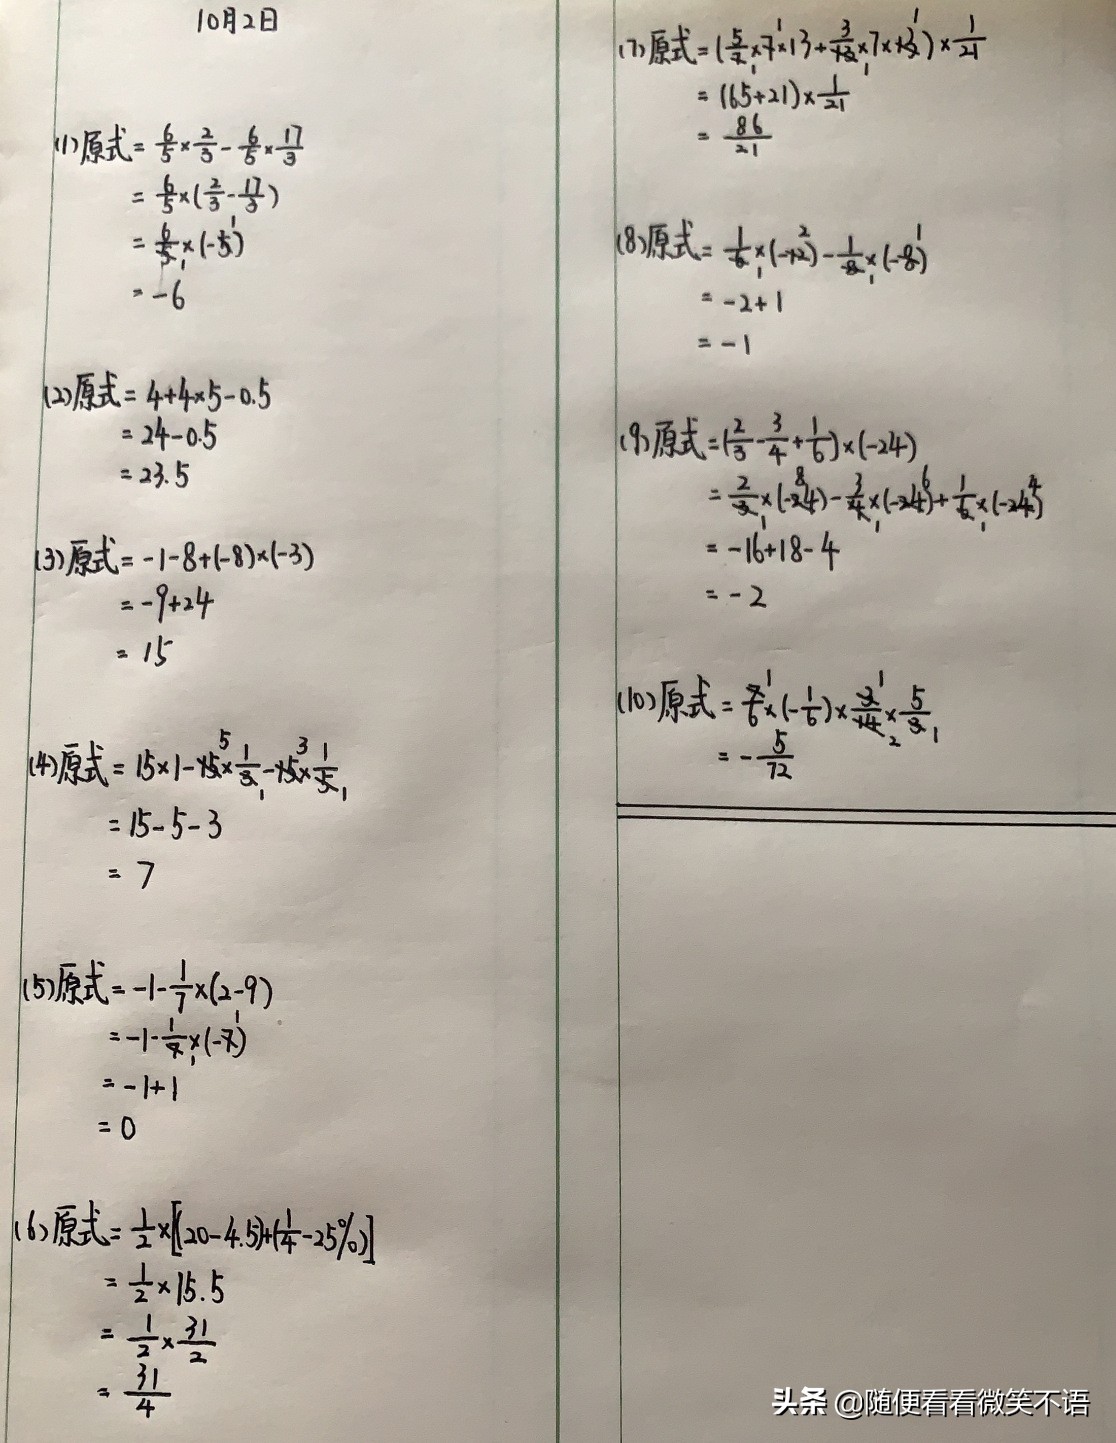 10月2日
(1)原式= 6/5×2/3-6/5×17/3
= 6/5×(2/3-17/3)
= 6/5×(-5)
= -6
(2)原式= 4+4×5-0.5
= 24-0.5
= 23.5
(3)原式= -1-8+(-8)×(-3)
= -9+24
= 15
(4)原式= 15×1-15×1/3-15×1/5
= 15-5-3
= 7
(5)原式= -1-1/7×(2-9)
= -1-1/7×(-7)
= -1+1
= 0
(6)原式= 1/2×[(20-4.5)+(1/4-25%)]
= 1/2×15.5
= 1/2×31/2
= 31/4
(7)原式=(5/7×7×13+3/13×7×13)×1/21
= (65+21)×1/21
= 86/21
(8)原式= 1/6×(-12)-1/8×(-8)
= -2+1
= -1
(9)原式=(2/3-3/4+1/6)×(-24)
= 2/3×(-24)-3/4×(-24)+1/6×(-24)
= -16+18-4
= -2
(10)原式= 7/6×(-1/6)×3/14×5/3
= -5/72
头条 @随便看看微笑不语